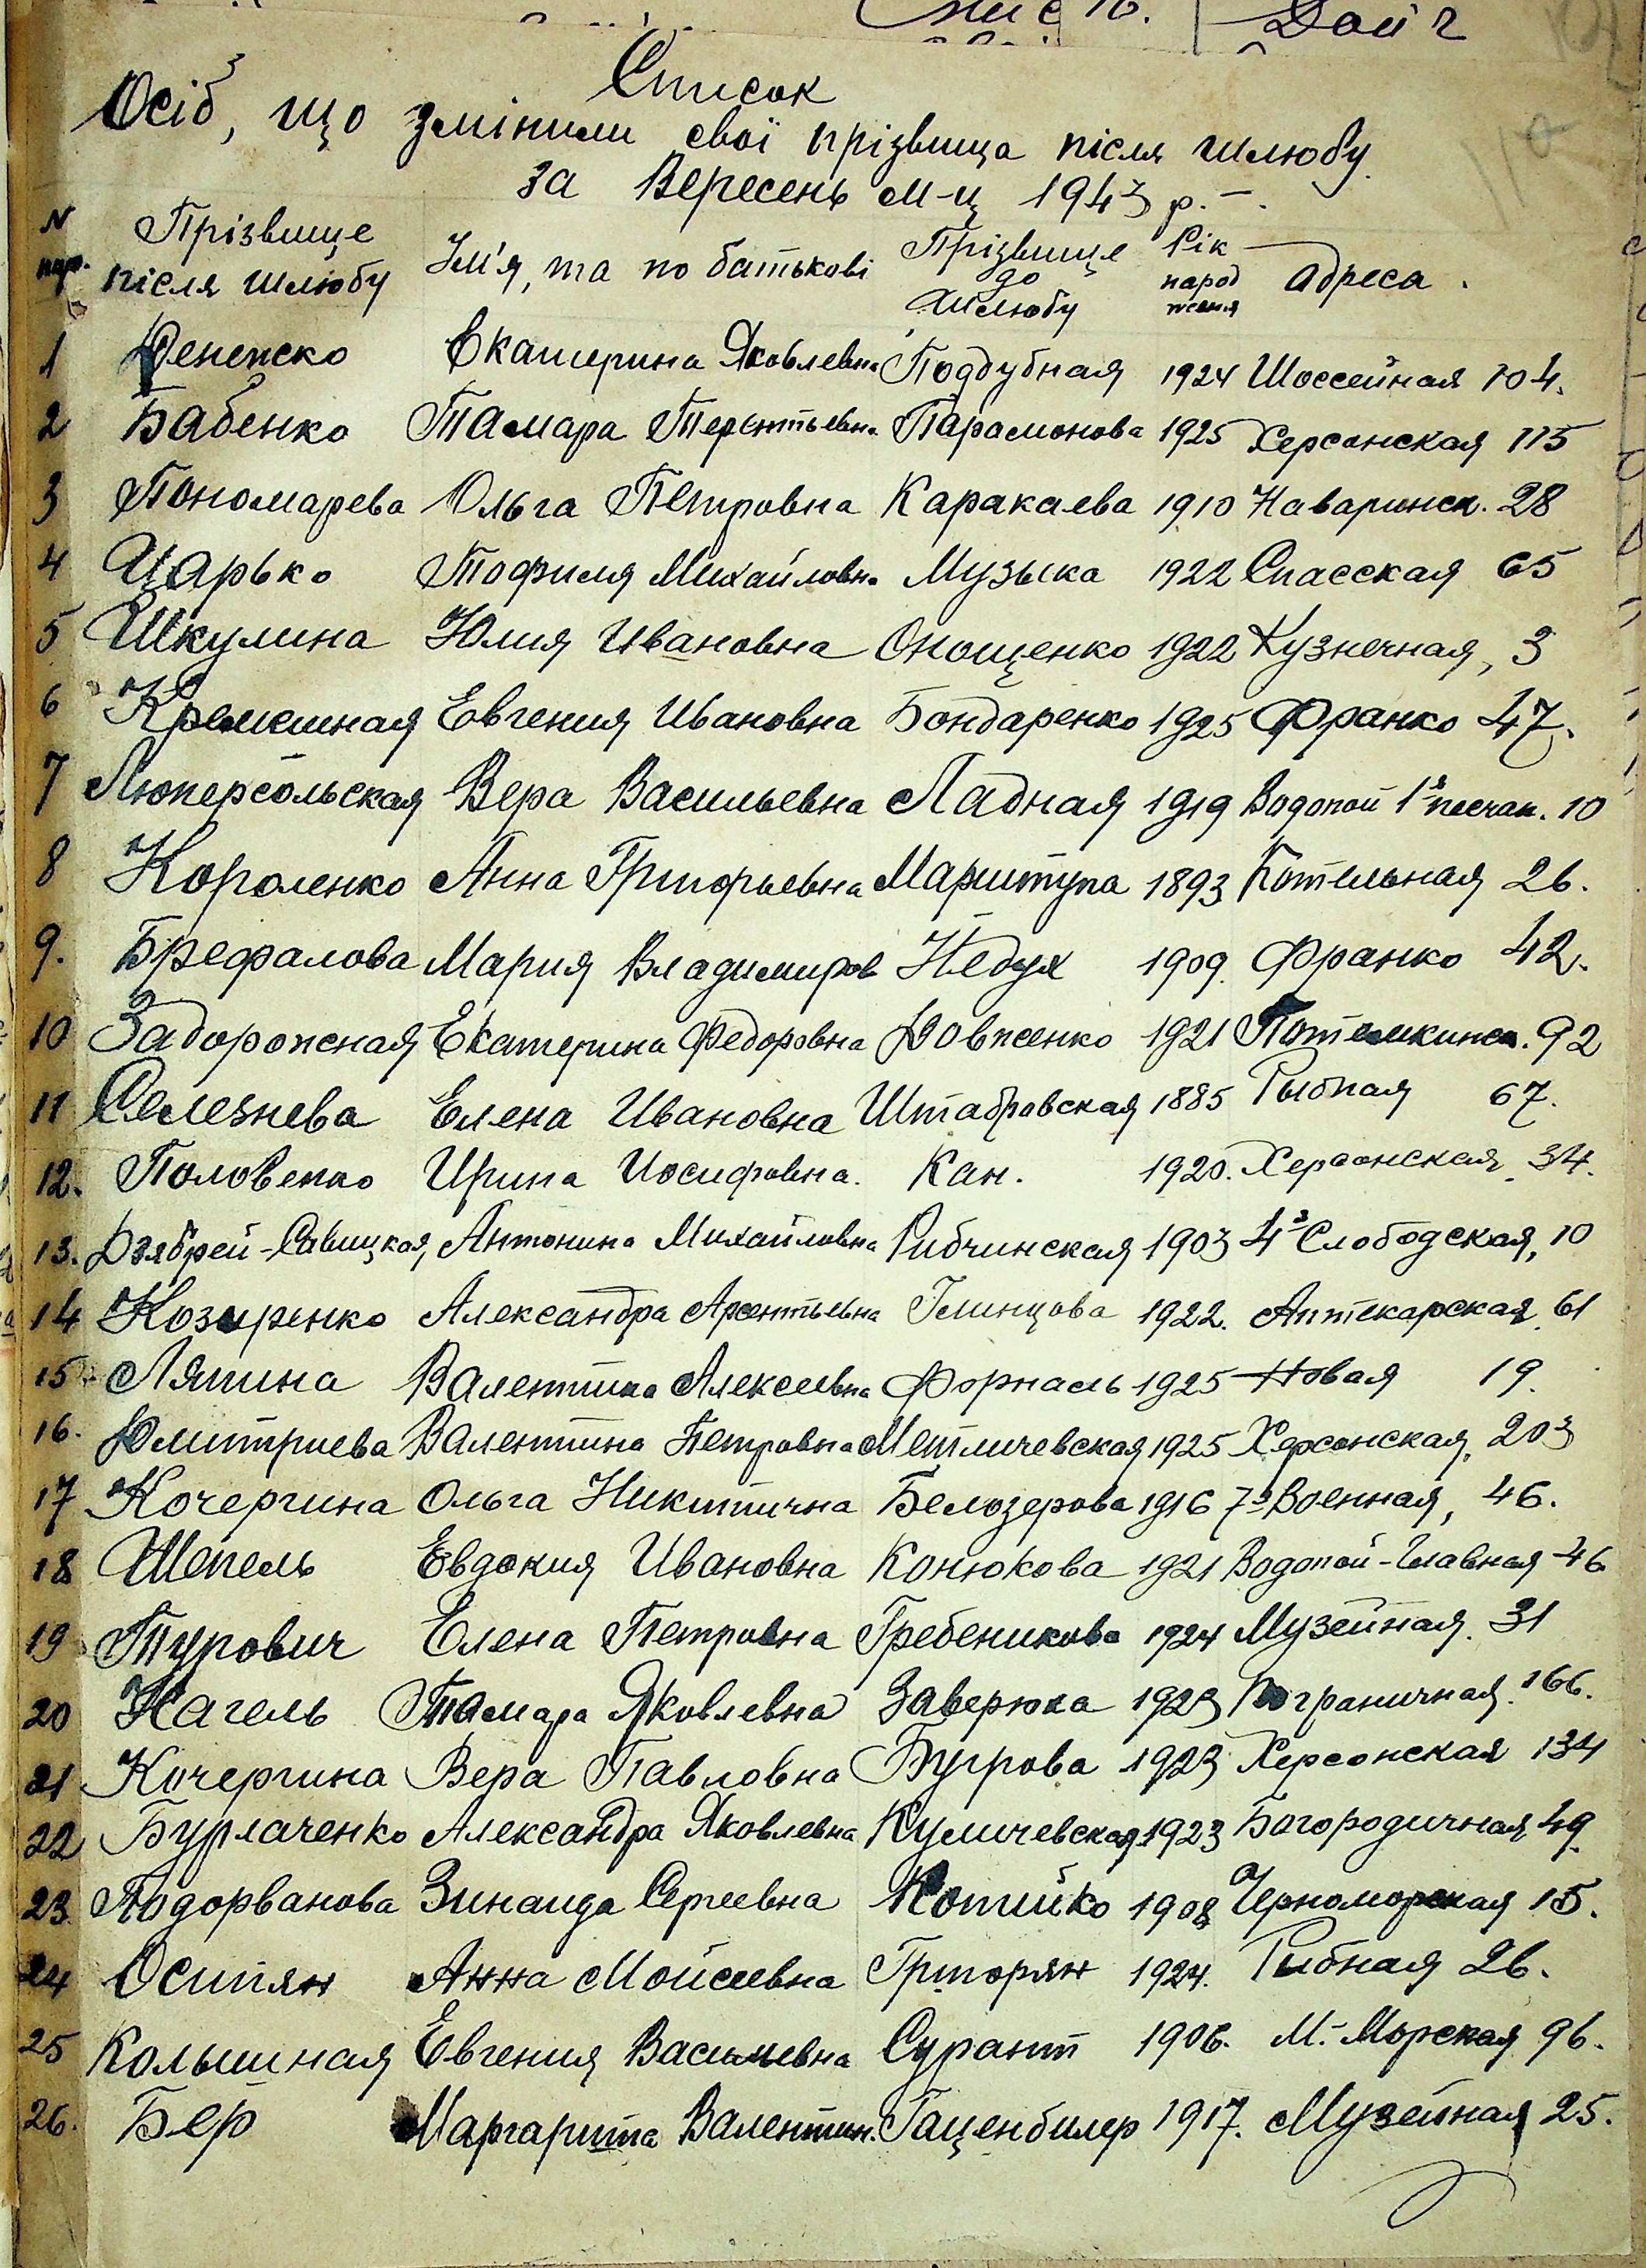 Список
Осіб, що змінили свої прізвища після шлюбу
за Вересень м-ц 1943 р. –.
N пор. Прізвище після шлюбу Ім'я, та по батькові Прізвище до шлюбу Рік народження Адреса.
1 Екатерина Яковлевна Поддубная 1924 Шоссейная 104.
2 Бабенко Тамара Терентьевна Парамонова 1925 Херсонская 115
3 Пономарева Ольга Петровна Каракаева 1910 Наваринск. 28
4 Царько Тофиля Михайловн. Музыка 1922 Спасская 65
5 Шкулина Юлия Ивановна Онощенко 1922 Кузнечная, 3
6 Кремешная Евгения Ивановна Бондаренко 1925 Франко 47.
7 Люперсольская Вера Васильевна Ладная 1919 Водопой 1я песчан. 10
8 Короленко Анна Григорьевна Мариштупа 1893 Котельная 26.
9. Брефалова Мария Владимиров Недух 1909. Франко 42.
10 Задорожная Екатерина Федоровна Довженко 1921 Потемкинск. 92
11 Селезнева Елена Ивановна Штабровская 1885 Рыбная 67.
12. Половенко Ирина Иосифовна. Кан. 1920. Херсонская 34.
13. Дзябрей-Савицкая, Антонина Михайловна Рибчинская 1903 4я Слободская, 10
14 Козыренко Александра Арсентьевна Глинцова 1922. Аптекарская 61
15 Ляпина Валентина Алексеевна Форнась 1925 Новая 19.
16. Дмитриева Валентина Петровна Метличевская 1925 Херсонская, 203
17 Кочергина Ольга Никитична Белозерова 1916 7я Военная, 46.
18 Шепель Евдокия Ивановна Конюкова 1921 Водопой-Главная 46
19 Турович Елена Петровна Гребеникова 1924 Музейная. 31
20 Нагель Тамара Яковлевна Заверюха 1923 Пограничная. 166.
21 Кочергина Вера Павловна Бугрова 1923 Херсонская 134
22 Бурлаченко Александра Яковлевна Куличевская 1923 Богородичная 49.
23. Подорванова Зинаида Сергеевна Котийко 1908 Черноморская 15.
24 Осипян Анна Мойсеевна Григорян 1924. Рыбная 26.
25 Колышная Евгения Васильевна Сурант 1906. М. Морская 96.
26. Бер Маргарита Валентин. Гаценбилер 1917. Музейная 25.